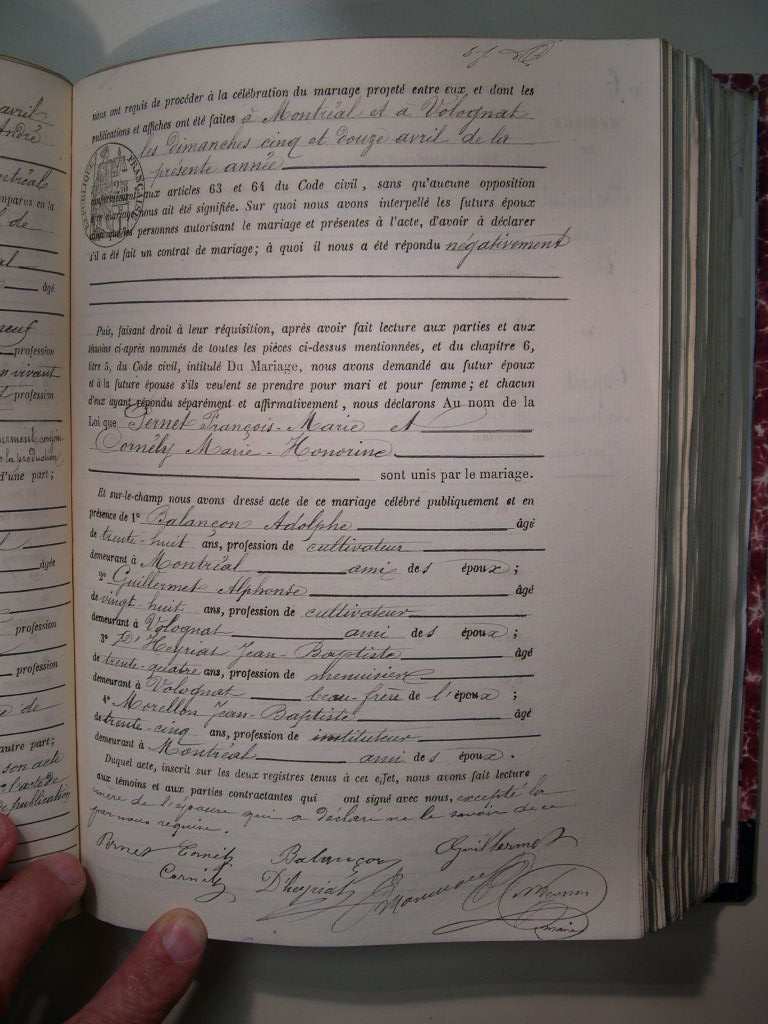 nous ont requis de procéder à la célébration du mariage projeté entre eux, et dont les
publications et affiches ont été faites à Montréal et à Volognat
les dimanches cinq et douze avril de la
présente année
RÉPUBLIQUE FRANÇAISE
conformément aux articles 63 et 64 du Code civil, sans qu'aucune opposition
au mariage nous ait été signifiée. Sur quoi nous avons interpellé les futurs époux
ainsi que les personnes autorisant le mariage et présentes à l'acte, d'avoir à déclarer
s'il a été fait un contrat de mariage; à quoi il nous a été répondu négativement
Puis, faisant droit à leur réquisition, après avoir fait lecture aux parties et aux
témoins ci-après nommés de toutes les pièces ci-dessus mentionnées, et du chapitre 6,
titre 5, du Code civil, intitulé Du Mariage, nous avons demandé au futur époux
et à la future épouse s'ils veulent se prendre pour mari et pour femme; et chacun
d'eux ayant répondu séparément et affirmativement, nous déclarons Au nom de la
Loi que Pernet François-Marie et
Cornély Marie-Honorine
sont unis par le mariage.
Et sur-le-champ nous avons dressé acte de ce mariage célébré publiquement et en
présence de 1° Balançon Adolphe âgé
de trente-huit ans, profession de cultivateur
demeurant à Montréal ami des époux;
2° Guillermet Alphonse âgé
de vingt-huit ans, profession de cultivateur
demeurant à Volognat ami des époux;
3° D'Heyriat Jean-Baptiste âgé
de trente-quatre ans, profession de menuisier
demeurant à Volognat beau-frère de l'époux;
4° Morellon Jean-Baptiste âgé
de trente-cinq ans, profession de instituteur
demeurant à Montréal ami des époux.
Duquel acte, inscrit sur les deux registres tenus à cet effet, nous avons fait lecture
aux témoins et aux parties contractantes qui ont signé avec nous, excepté la
mère de l'épouse qui a déclaré ne le savoir de ce
par nous requise.
Pernet Cornély Balançon Guillermet
Cornély D'heyriat
maire
avril
André
Montréal
comparus en la
de
âgé
profession
vivant
profession
la production
d'une part;
âgée
profession
profession
de
autre part;
son acte
l'acte de
publication